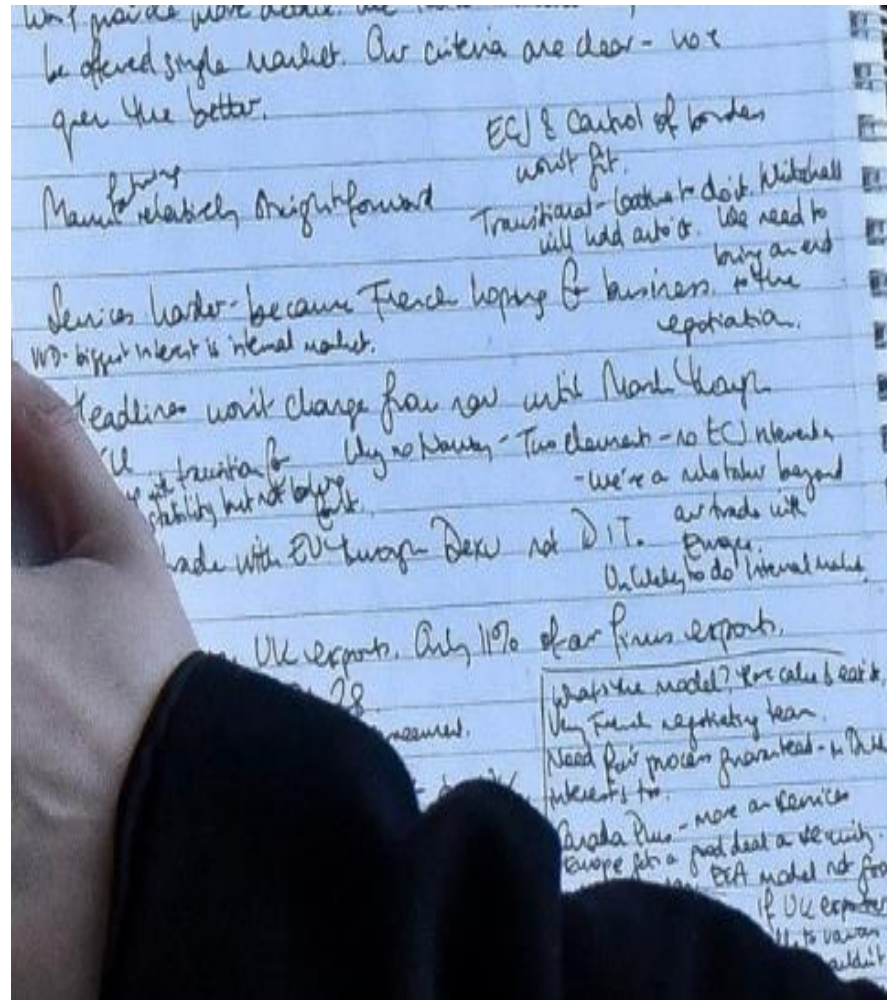 be offered single market. Our criteria are clear - we
quer the better.
ECJ & Control of borders
won't fit.
Manufacturing relatively straightforward
Transitional - loathe to do it. Whitehall
will hold onto it. We need to
bring an end
to the
negotiation.
Services harder - because French hoping for business.
VVD - biggest interest is internal market.
Headlines won't change from now until March though
transition for
stability but not
Why no Norway - Two elements - no ECJ intervention
- we're a rule taker beyond
our trade with
Europe.
Unlikely to do internal market.
with EU through Dexu not DIT.
UK exports. Only 11% of our firms exports.
28
What's the model? Have cake & eat it.
Very French negotiating team.
Need fair process guaranteed - in Dutch
interests too.
Canada Plus - more on services
Europe gets a good deal on security.
EEA model not
If UK